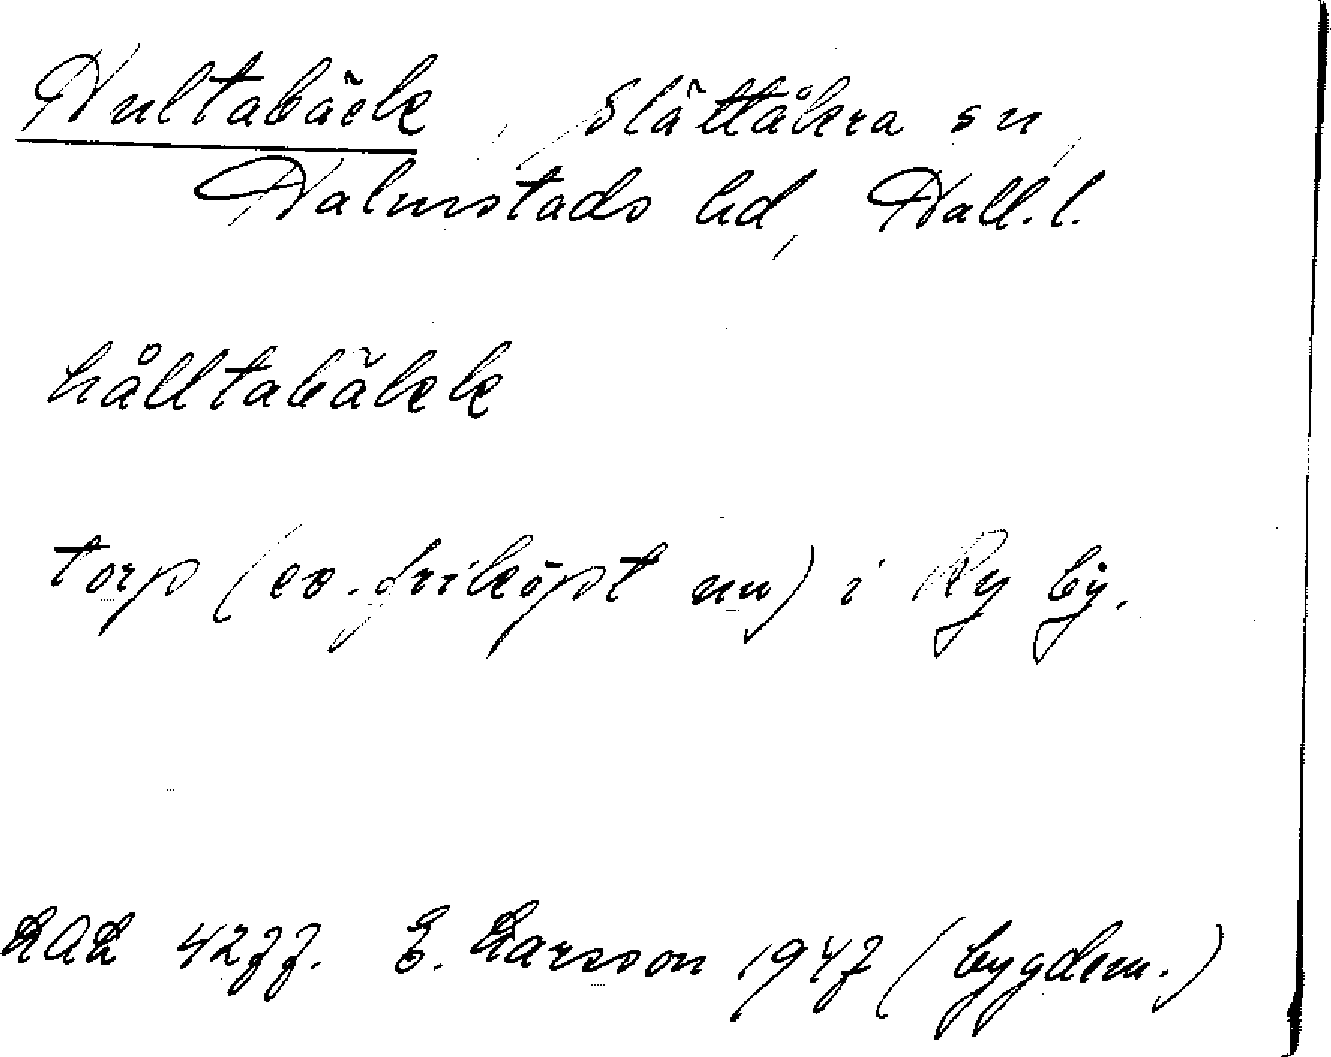 Hultabäck, Slättåkra sn,
Halmstads hd, Hall. l.
hålltabäkk
torp (ev. friköpt nu) i Ry by.
LAL 4277. E. Larsson 1947 (bygdem.)